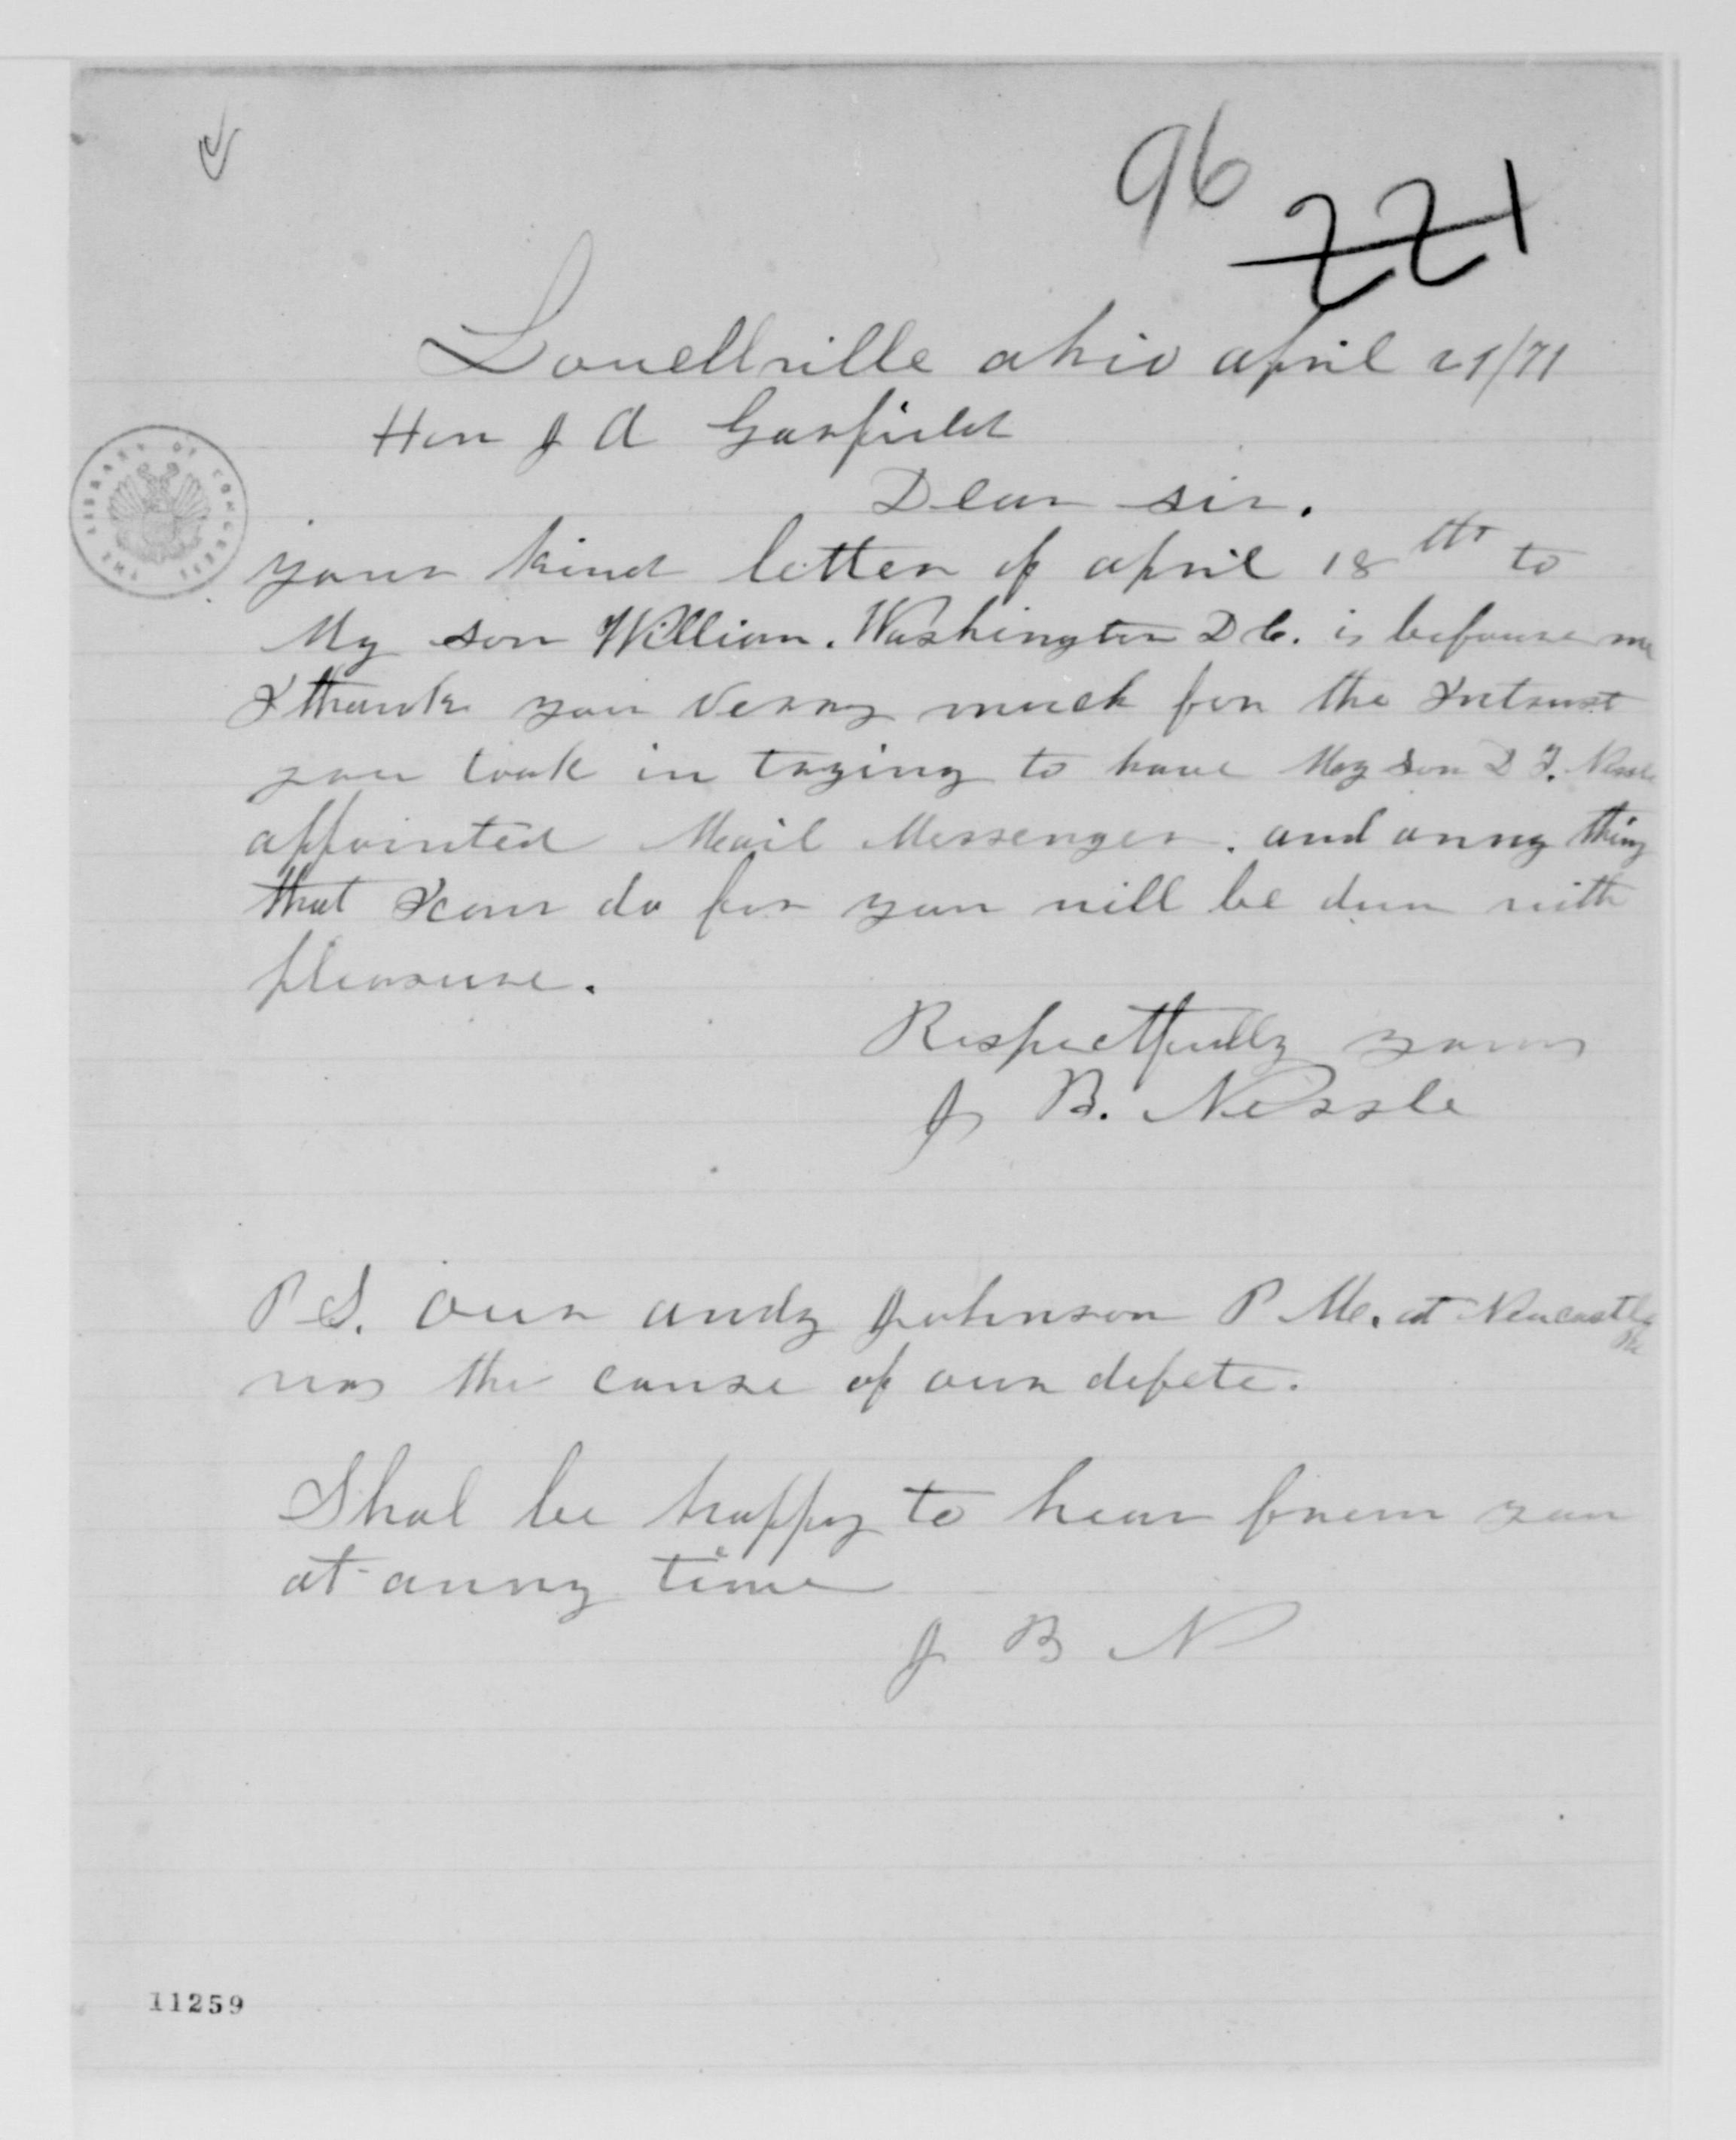 96
221
Lowellville ohio april 21/71
Hon J A Garfield
Dear sir.
THE LIBRARY OF CONGRESS
your kind letter of april 18th to
My son William. Washington D C. is befoure me
I thank you verry much for the Intrust
you took in trying to have My son D F. Nessle
appointed Mail Messenger. and anny thing
that I can do for you will be dun with
pleasure.
Respectfully yours
J B. Nessle
P S. Our andy Johnson P M. at Newcastle
Pa
was the cause of our defete.
Shal be happy to hear frum you
at anny time
J B N
11259